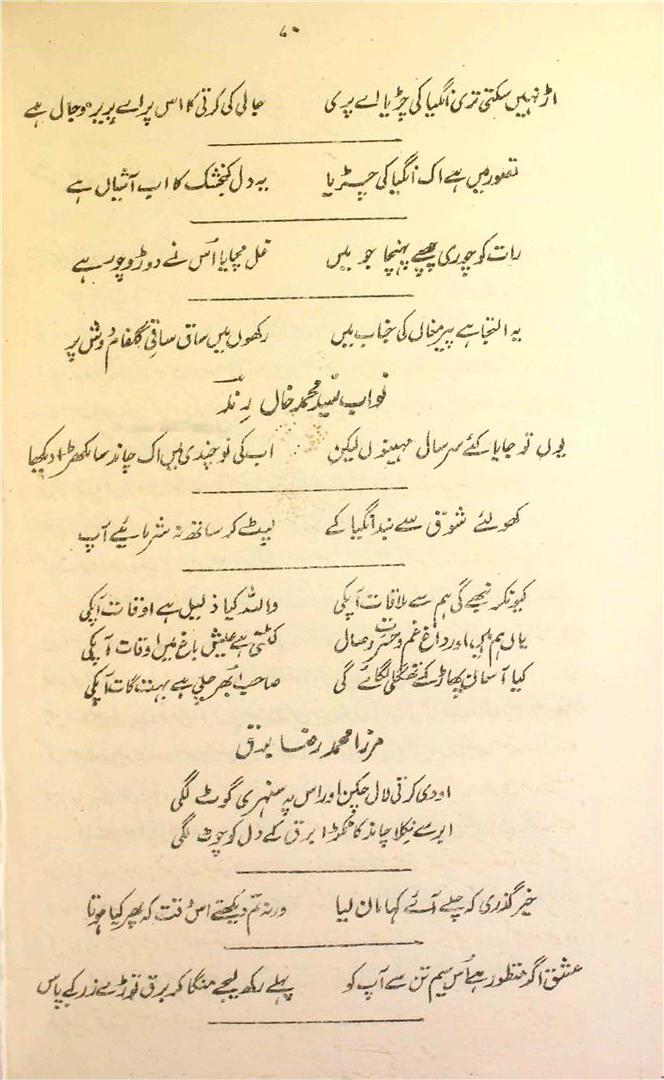 ۸۰
اڑ نہیں سکتی تری انگیا کی چڑیا اے پری جالی کی کرتی کا اس پر اے پریرو جال ہے
تصور میں ہے اک انگیا کی چڑیا یہ دل کنجشک کا اب آشیاں ہے
رات کو چوری چھپے پہنچا جو میں غل مچایا اُس نے دوڑو چور ہے
یہ التجا ہے پیر مغاں کی جناب میں رکھوں میں ساق ساقی گلفام دوش پر
نواب سید محمد خاں رند
یوں تو جایا کئے ہر سال مہینوں لیکن اب کی نوچندی میں اک چاند سا مکھڑا دیکھا
کھولئے شوق سے بند انگیا کے لیٹ کر ساتھ نہ شرمائیے آپ
کیونکر نبھے گی ہم سے ملاقات آپکی واللہ کیا ذلیل ہے اوقات آپکی
یاں ہم ہیں اور داغ غم و حسرت وصال کٹتی ہے عیش باغ میں اوقات آپکی
کیا آسمان پھاڑ کے تھگلی لگائے گی صاحب اُبھر چلی ہے بہت گات آپکی
مرزا محمد رضا برق
اودی کرتی لال چکن اور اس پہ سنہری گوٹ لگی
ابر سے نکلا چاند کا ٹکڑا برق کے دل کو چوٹ لگی
خیر گذری کہ چلے آئے کہا مان لیا ورنہ تم دیکھتے اس وقت کہ پھر کیا ہوتا
عشق اگر منظور ہے اُس سیم تن سے آپ کو پہلے رکھ لیجے منگا کر برق توڑے زر کے پاس